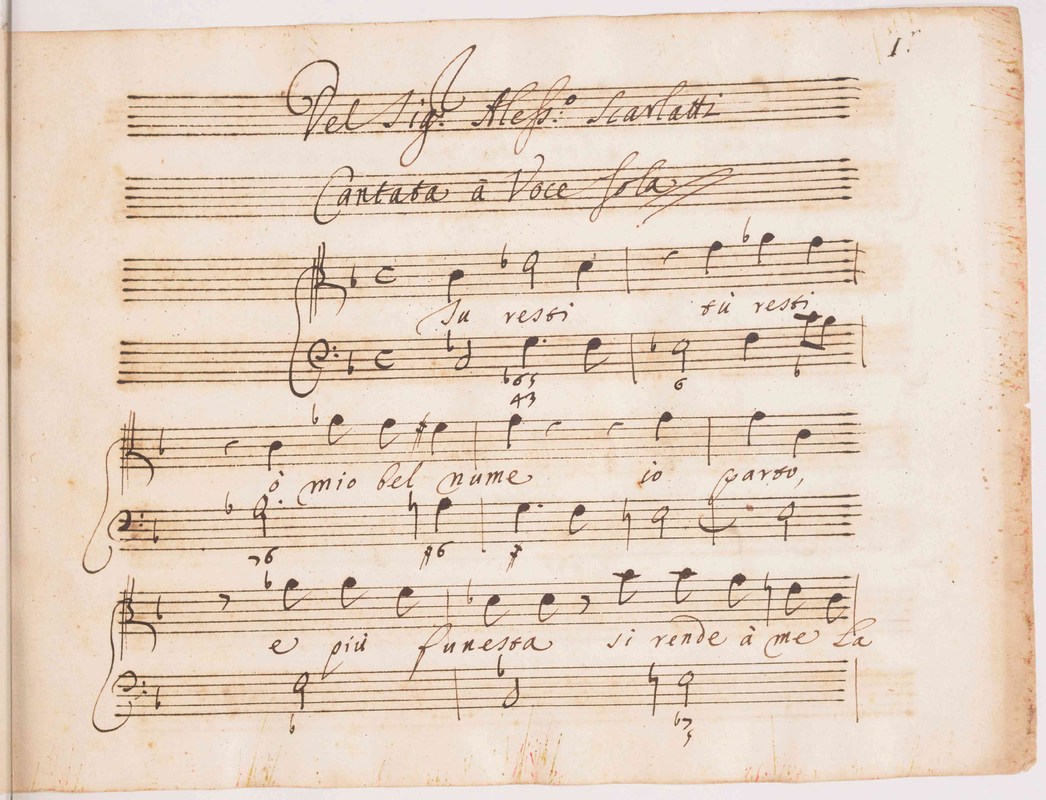 1r
Del Sigr. Aless.o Scarlatti
Cantata à Voce sola
Tu resti tù resti
b65 6 b
43
ò mio bel nume io parto,
76 #6 #
e più funesta si rende à me La
b b7
5